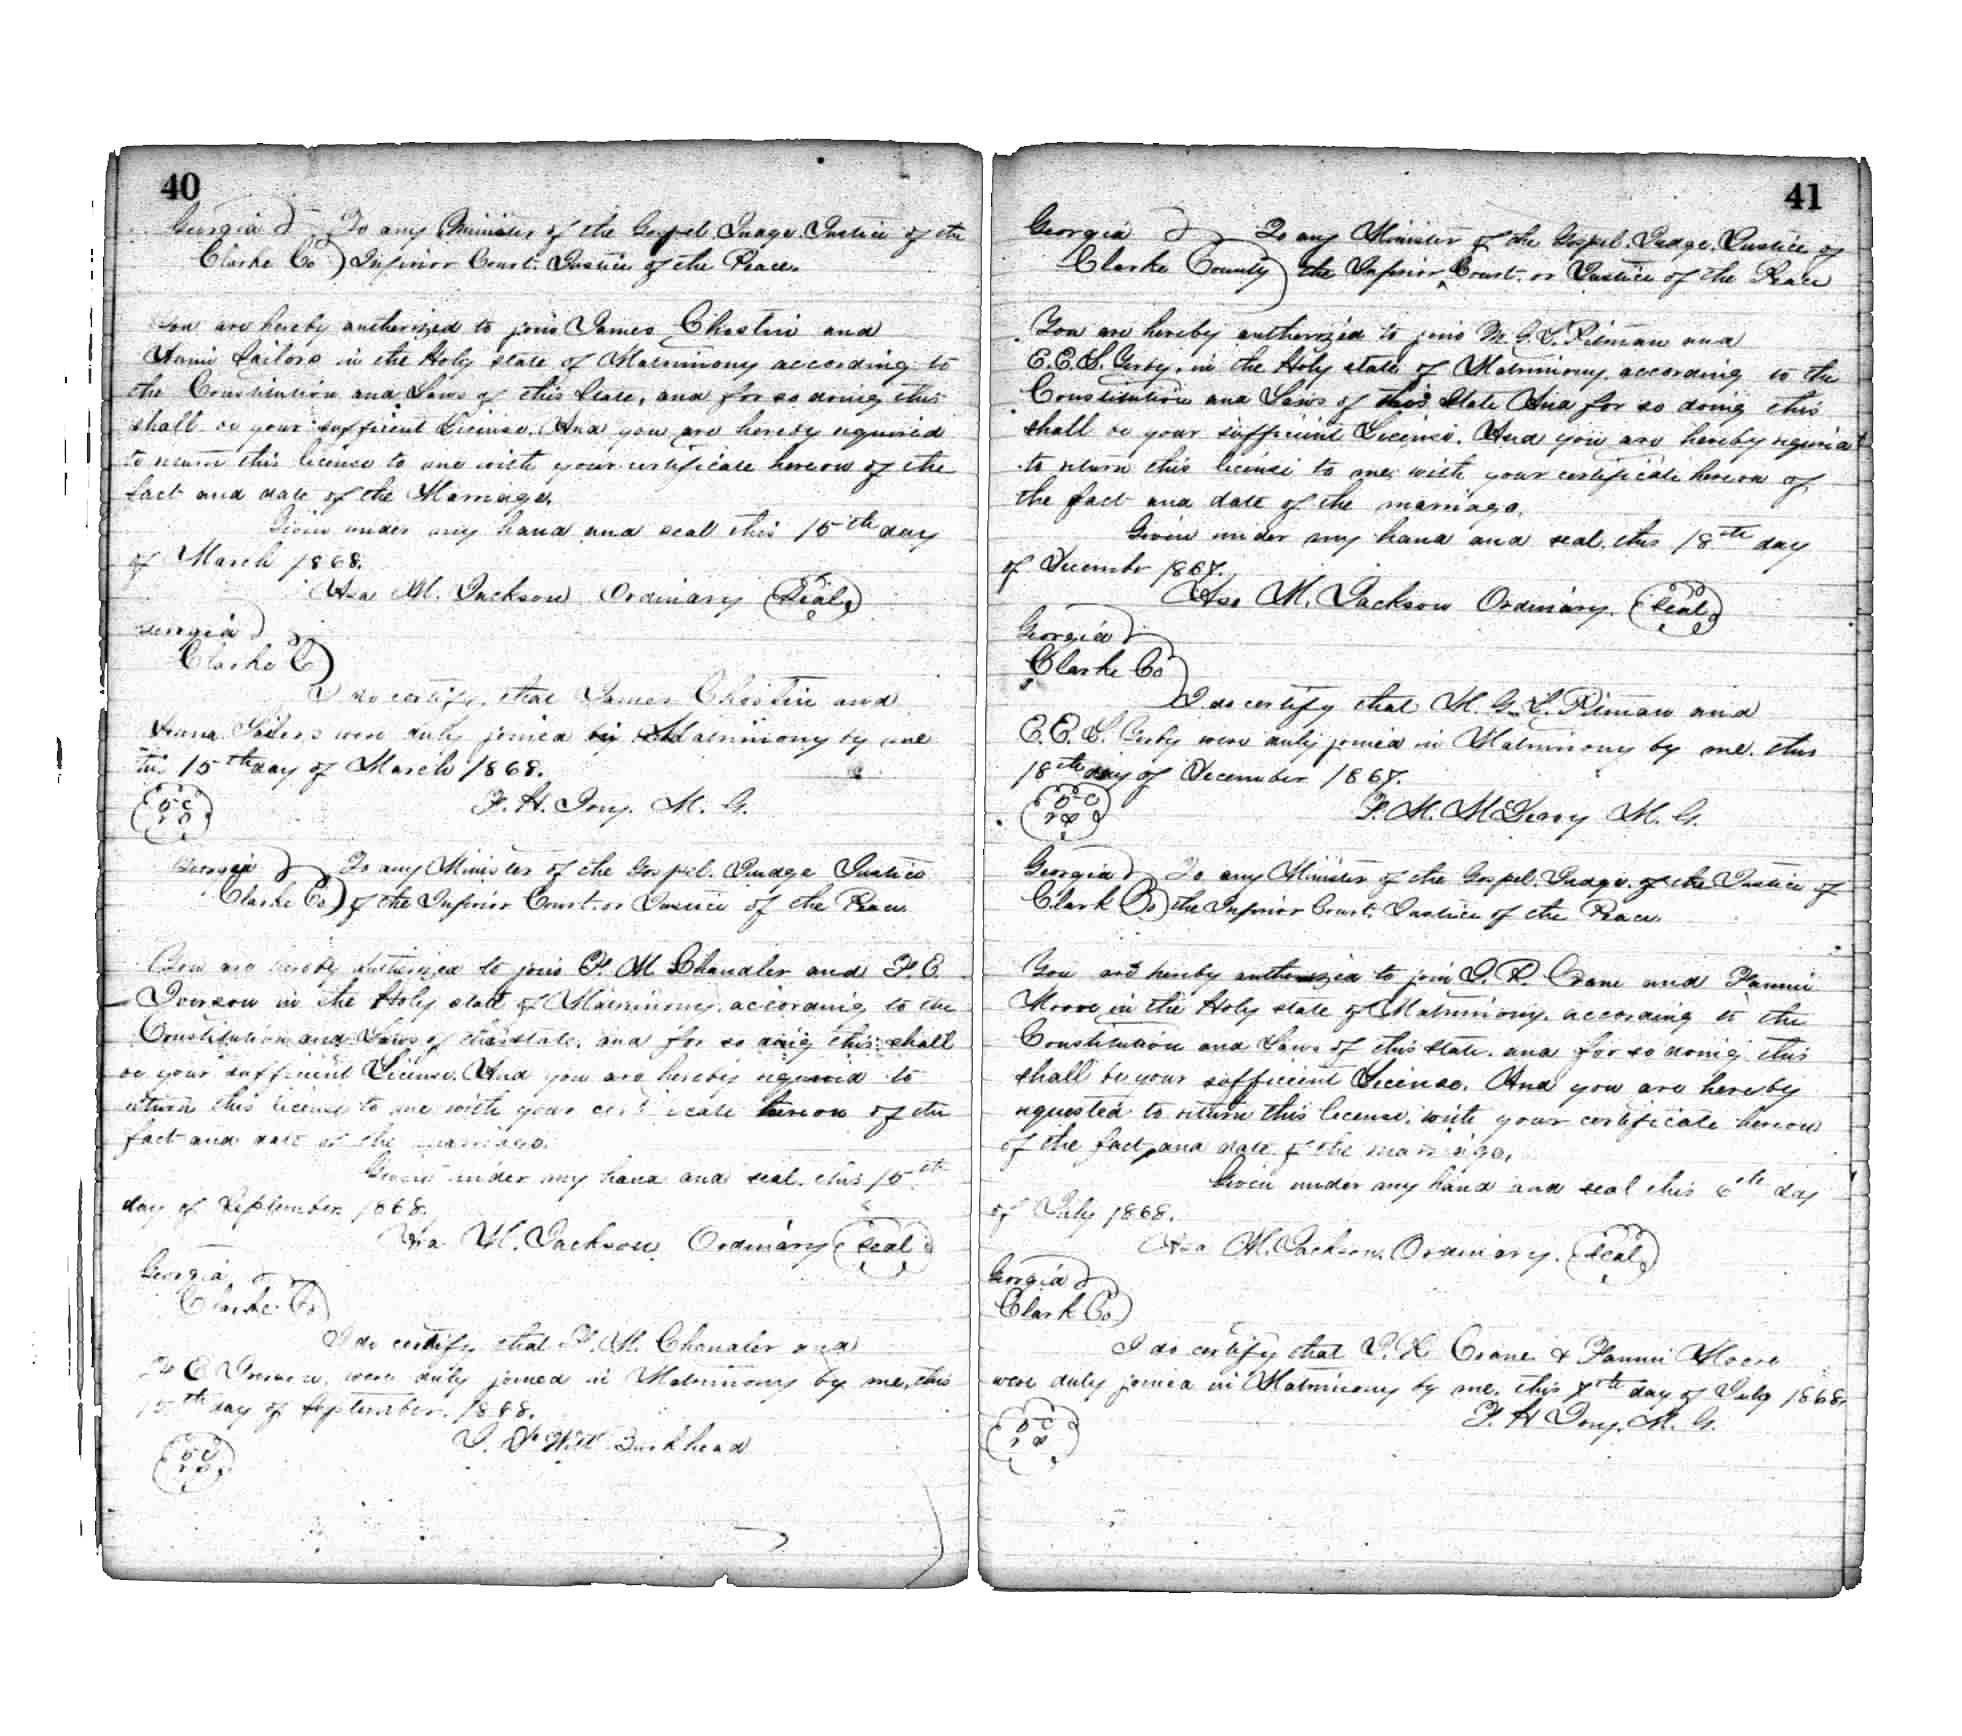 40
Georgia } To any Minister of the Gospel. Judge. Justice of the
Clarke Co ) Inferior Court. Justice of the Peace.
You are hereby authorized to join James Chastin and
Sailors in the Holy state of Matrimony according to
the Constitution and Laws of this State, and for so doing this
shall be your sufficient License. And you are hereby required
to return this license to me with your certificate hereon of the
fact and date of the Marriage.
Given under my hand and seal this 15th day
of March 1868.
Asa M. Jackson Ordinary (Seal)
Georgia }
Clarke Co )
I do certify that James Chastin and
were duly joined in Matrimony by me
this 15th day of March 1868.
F. H. Ivy. M. G.
Georgia } To any Minister of the Gospel. Judge Justice
Clarke Co ) of the Inferior Court. or Justice of the Peace.
You are hereby authorized to join F. M. Chandler and F. E.
Iverson in the Holy state of Matrimony. according to the
Constitution and Laws of this state. and for so doing this shall
be your sufficient License. And you are hereby required to
return this license to me with your certificate hereon of the
fact and date of the marriage.
Given under my hand and seal. this 15th
day of September 1868.
Asa M. Jackson Ordinary (Seal)
Georgia
Clarke Co )
I do certify that F. M. Chandler and
F. E. were duly joined in Matrimony by me, this
15th day of September. 1868.
Burkhead
41
Georgia } To any Minister of the Gospel. Judge. Justice of
Clarke County ) the Inferior Court. or Justice of the Peace
You are hereby authorized to join M. G. L. and
E. E. S. in the Holy state of Matrimony. according to the
Constitution and Laws of this State And for so doing this
shall be your sufficient License. And you are hereby
to return this license to me with your certificate hereon of
the fact and date of the marriage.
Given under my hand and seal. this 18th day
of December 1867.
Asa M. Jackson Ordinary. (Seal)
Georgia }
Clarke Co )
I do certify that M. G. L. and
E. E. S. were duly joined in Matrimony by me. this
18th day of December 1867.
M. G.
Georgia } To any Minister of the Gospel. Judge. of the Justice of
Clark Co ) the Inferior Court. Justice of the Peace.
You are hereby authorized to join Crane and Fannie
Moore in the Holy state of Matrimony. according to the
Constitution and Laws of this state. and for so doing this
shall be your sufficient License. And you are hereby
requested to return this license. with your certificate hereon
of the fact and date of the marriage.
Given under my hand and seal this 6th day
of July 1868.
Asa M. Jackson. Ordinary. (Seal)
Georgia }
Clark Co )
I do certify that Crane & Fannie Moore
were duly joined in Matrimony by me. this 7th day of July 1868.
F. H. Ivy. M. G.